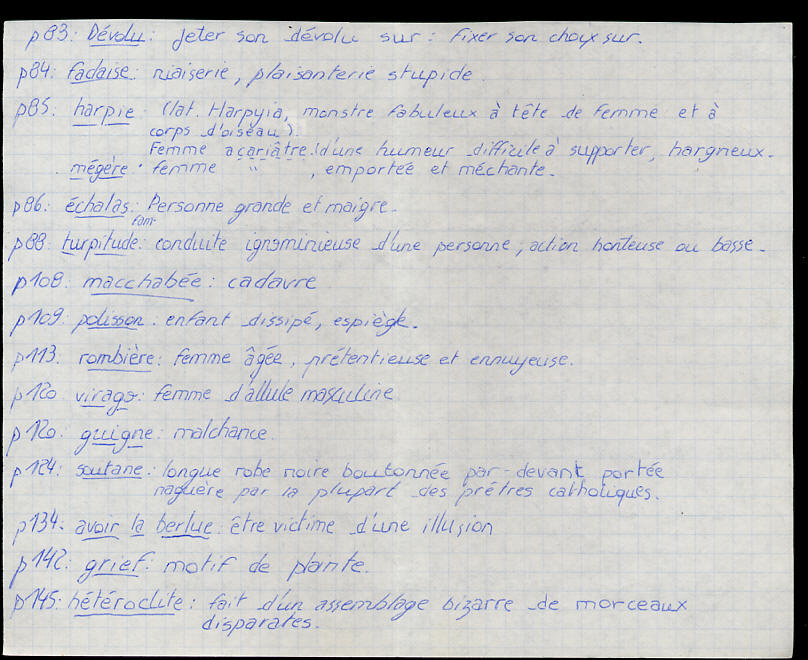 p83: Dévolu: jeter son dévolu sur: fixer son choix sur.
p84: fadaise: niaiserie, plaisanterie stupide
p85: harpie: (lat. Harpyia, monstre fabuleux à tête de femme et à
corps d'oiseau).
Femme acariâtre (d'une humeur difficile à supporter, hargneux.
. mégère: femme " , emportée et méchante.
p86: échalas: Personne grande et maigre.
fam.
p88: turpitude: conduite ignominieuse d'une personne; action honteuse ou basse.
p108: macchabée: cadavre
p109: polisson: enfant dissipé, espiègle.
p113: rombière: femme âgée, prétentieuse et ennuyeuse.
p120 virago: femme d'allule masculine
p120: guigne: malchance
p124: soutane: longue robe noire boutonnée par-devant portée
naguère par la plupart des prêtres catholiques.
p134: avoir la berlue: être victime d'une illusion
p142: grief: motif de plante.
p145: hétéroclite: fait d'un assemblage bizarre de morceaux
disparates.